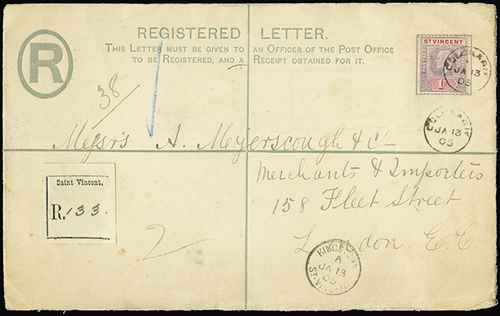 REGISTERED LETTER.
THIS LETTER MUST BE GIVEN TO AN OFFICER OF THE POST OFFICE
TO BE REGISTERED, AND A RECEIPT OBTAINED FOR IT.
R
ST VINCENT
38
JA 13
05
JA 13
05
Messrs A. Myerscough & Co
Merchants & Importers
158 Fleet Street
London E.C
Saint Vincent.
R. 133.
2
KINGSTOWN
A
JA 13
05